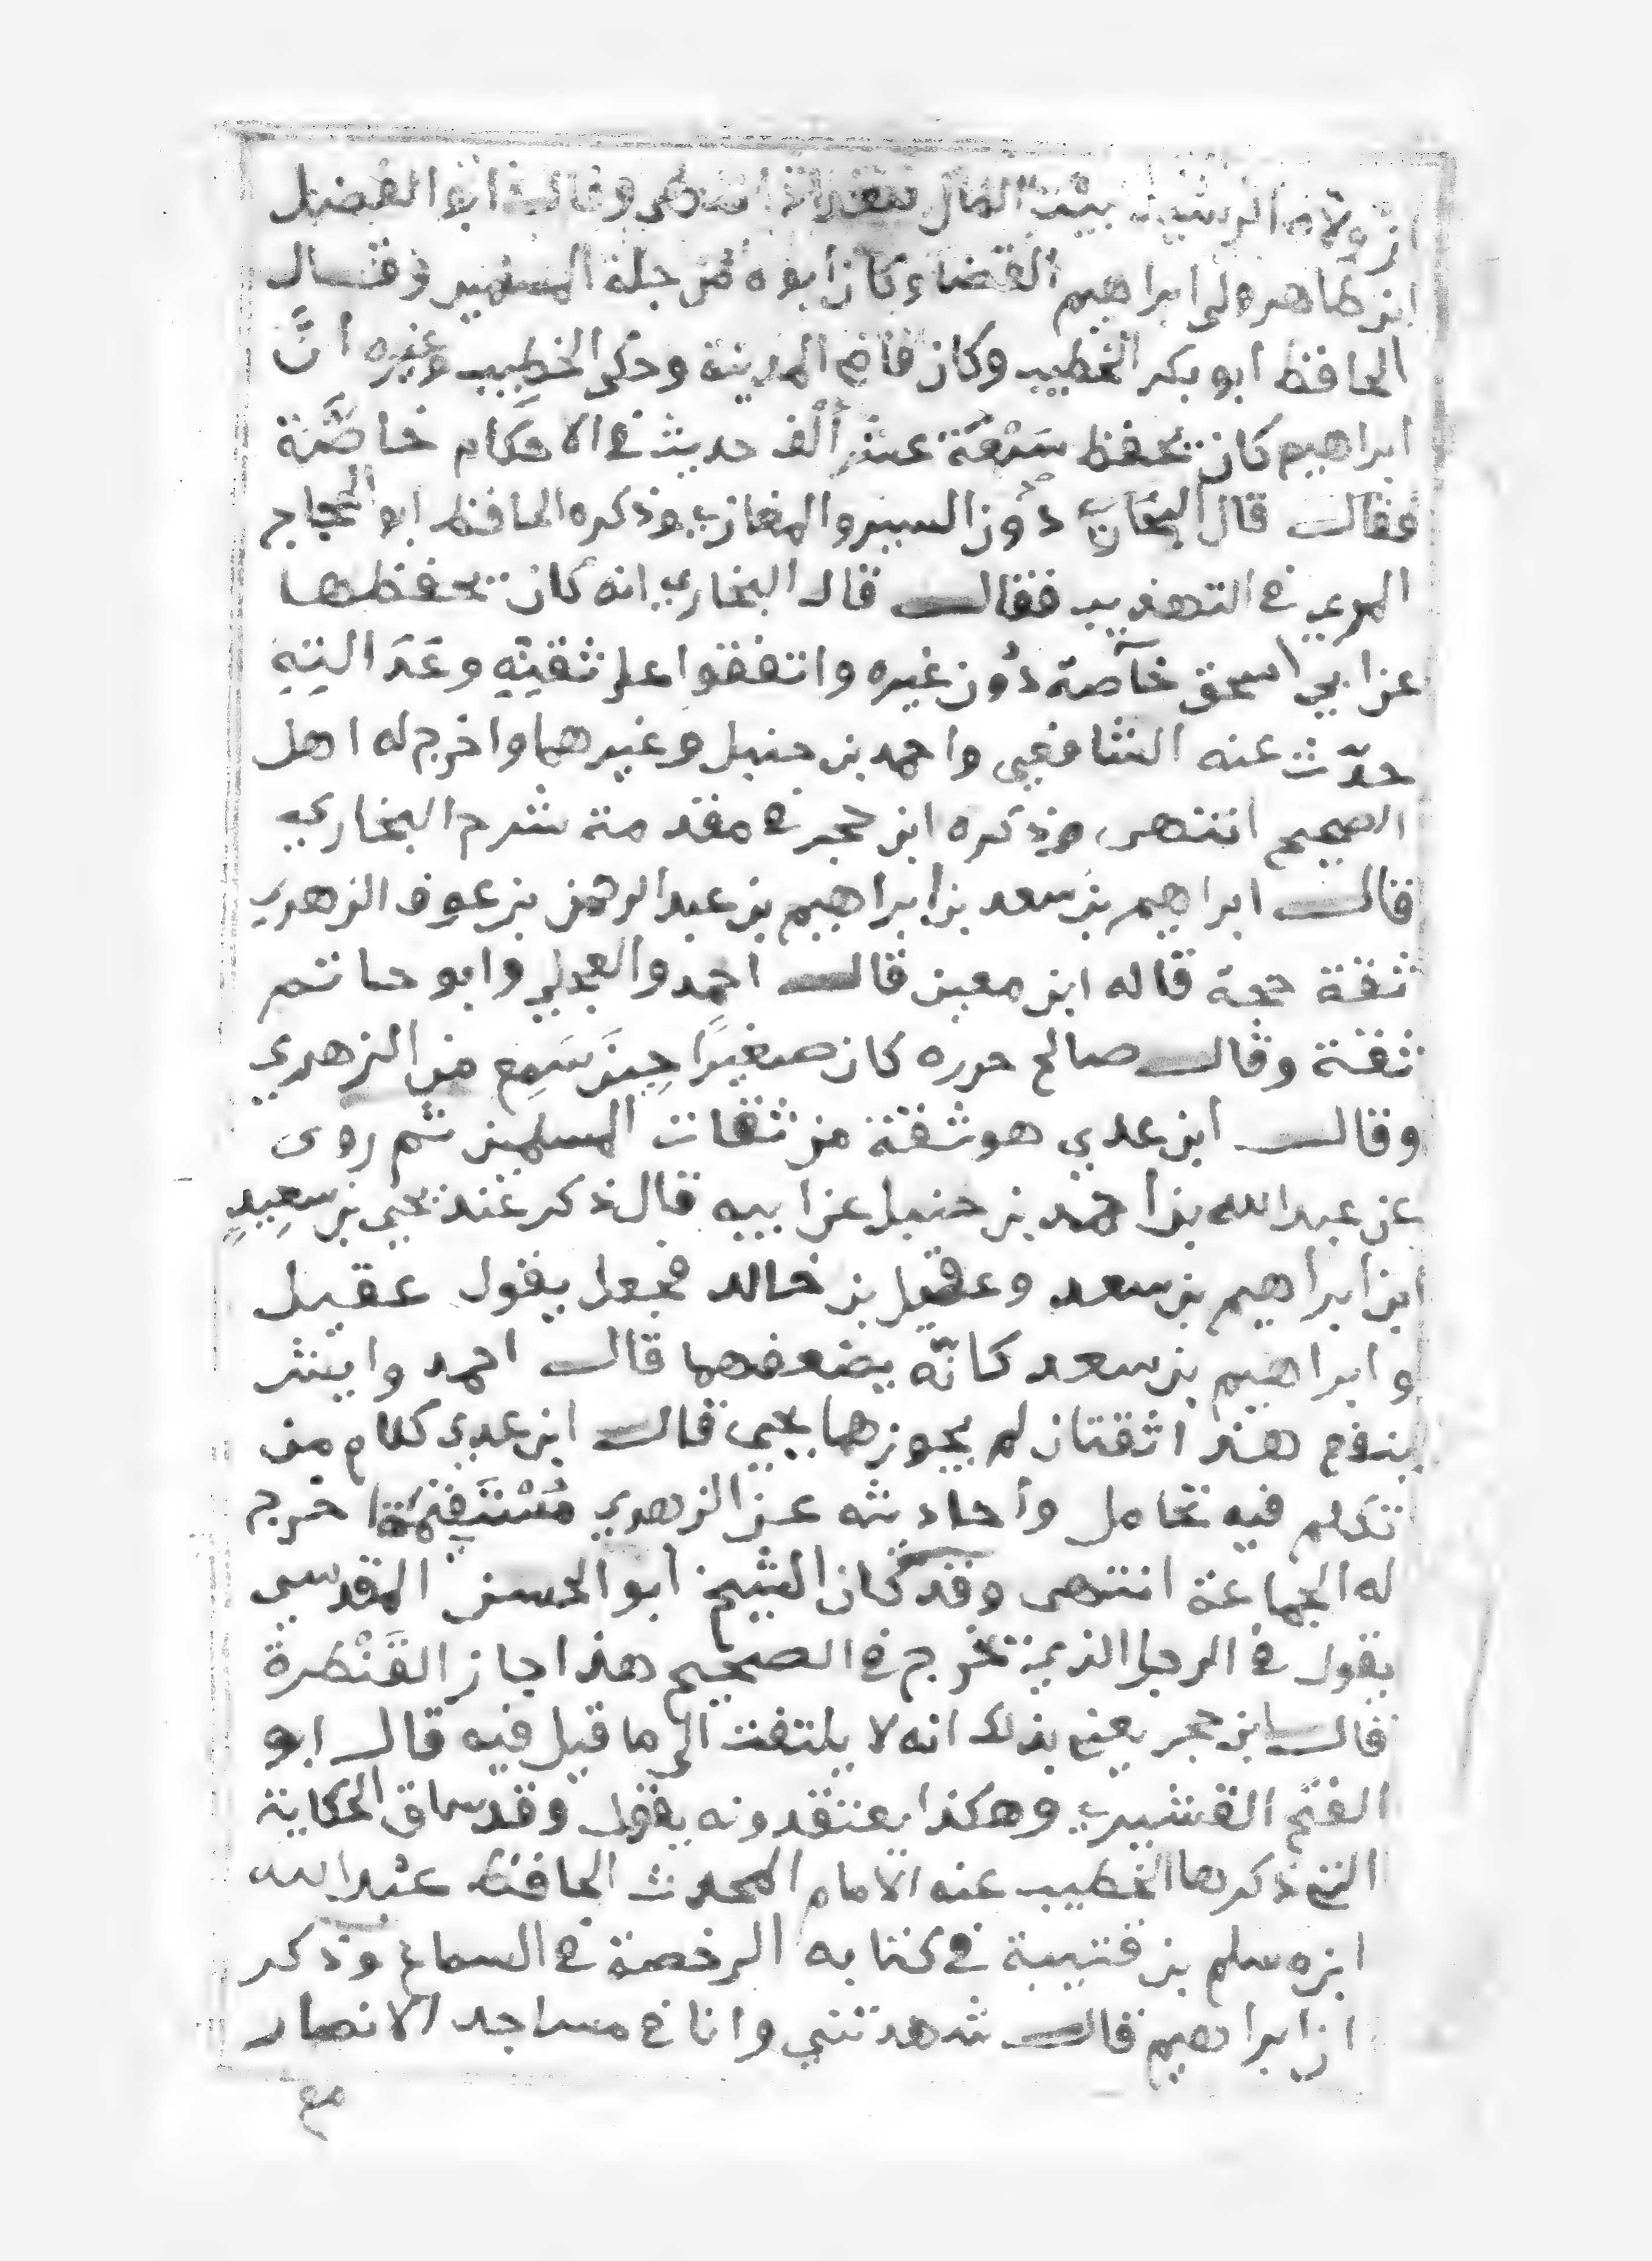 ان ولاه الرشيد بيت المال ببغداد انتهى وقال ابو الفضل
ابن طاهر ولي ابراهيم القضاء وكان ابوه من جلة المسلمين وقال
الحافظ ابو بكر الخطيب وكان قاضي المدينة وحكى الخطيب وغيره انَّ
ابراهيم كان يحفظ سَبْعَة عشر ألْف حديث في الاحكام خاصَّة
فقال قال البخاري دُون السير والمغازي وذكره الحافظ ابو الحجاج
المزي في التهذيب فقال قال البخاري انه كان يحفظها
عن ابي اسحق خآصة دُون غيره واتفقوا على ثقتِهِ وعَدَالتِهِ
حدّث عنه الشافعي واحمد بن حنبل وغيرهما واخرج له اهل
الصحيح انتهى وذكره ابن حجر في مقدمة شرح البخاري
فقال ابراهيم بن سعد بن ابراهيم بن عبد الرحمن بن عوف الزهري
ثقة حجة قاله ابن معين قال احمد والعجلي وابو حاتم
ثقة وقال صالح حرره كان صغيرًا حِينَ سَمِع من الزهري
وقال ابن عدي هو ثقة من ثقات المسلمين ثم روى
عن عبد الله بن أحمد بن حنبل عن ابيه قال ذكر عند يحيى بن سعِيدٍ
ابن ابراهيم بن سعد وعقيل بن خالد فجعل يقول عقيل
وابراهيم بن سعد كانّه يضعفهما قال احمد وايش
ينفع هذا ثقتان لم يجوزهما يحيى قال ابن عدي كلام من
تكلم فيه تحامل وأحاديثه عن الزهري مُسْتَقِيمَة اخرج
له الجماعة انتهى وقد كان الشيخ ابو الحسن المقدسي
يقول في الرجل الذي يخرج في الصحيح هذا جاز القَنْطَرة
قال ابن حجر يعني بذلك انه لا يلتفت الى ما قيل فيه قال ابو
الفتح القشيري وهكذا يعتقد ونه يقول وقد ساق الحكاية
التي ذكرها الخطيب عنه الامام المحدث الحافظ عبد الله
ابن مسلم بن قتيبة في كتابه الرخصة في السماع وذكر
ان ابراهيم قال شهدتني وانا في مساجد الانصار
مع